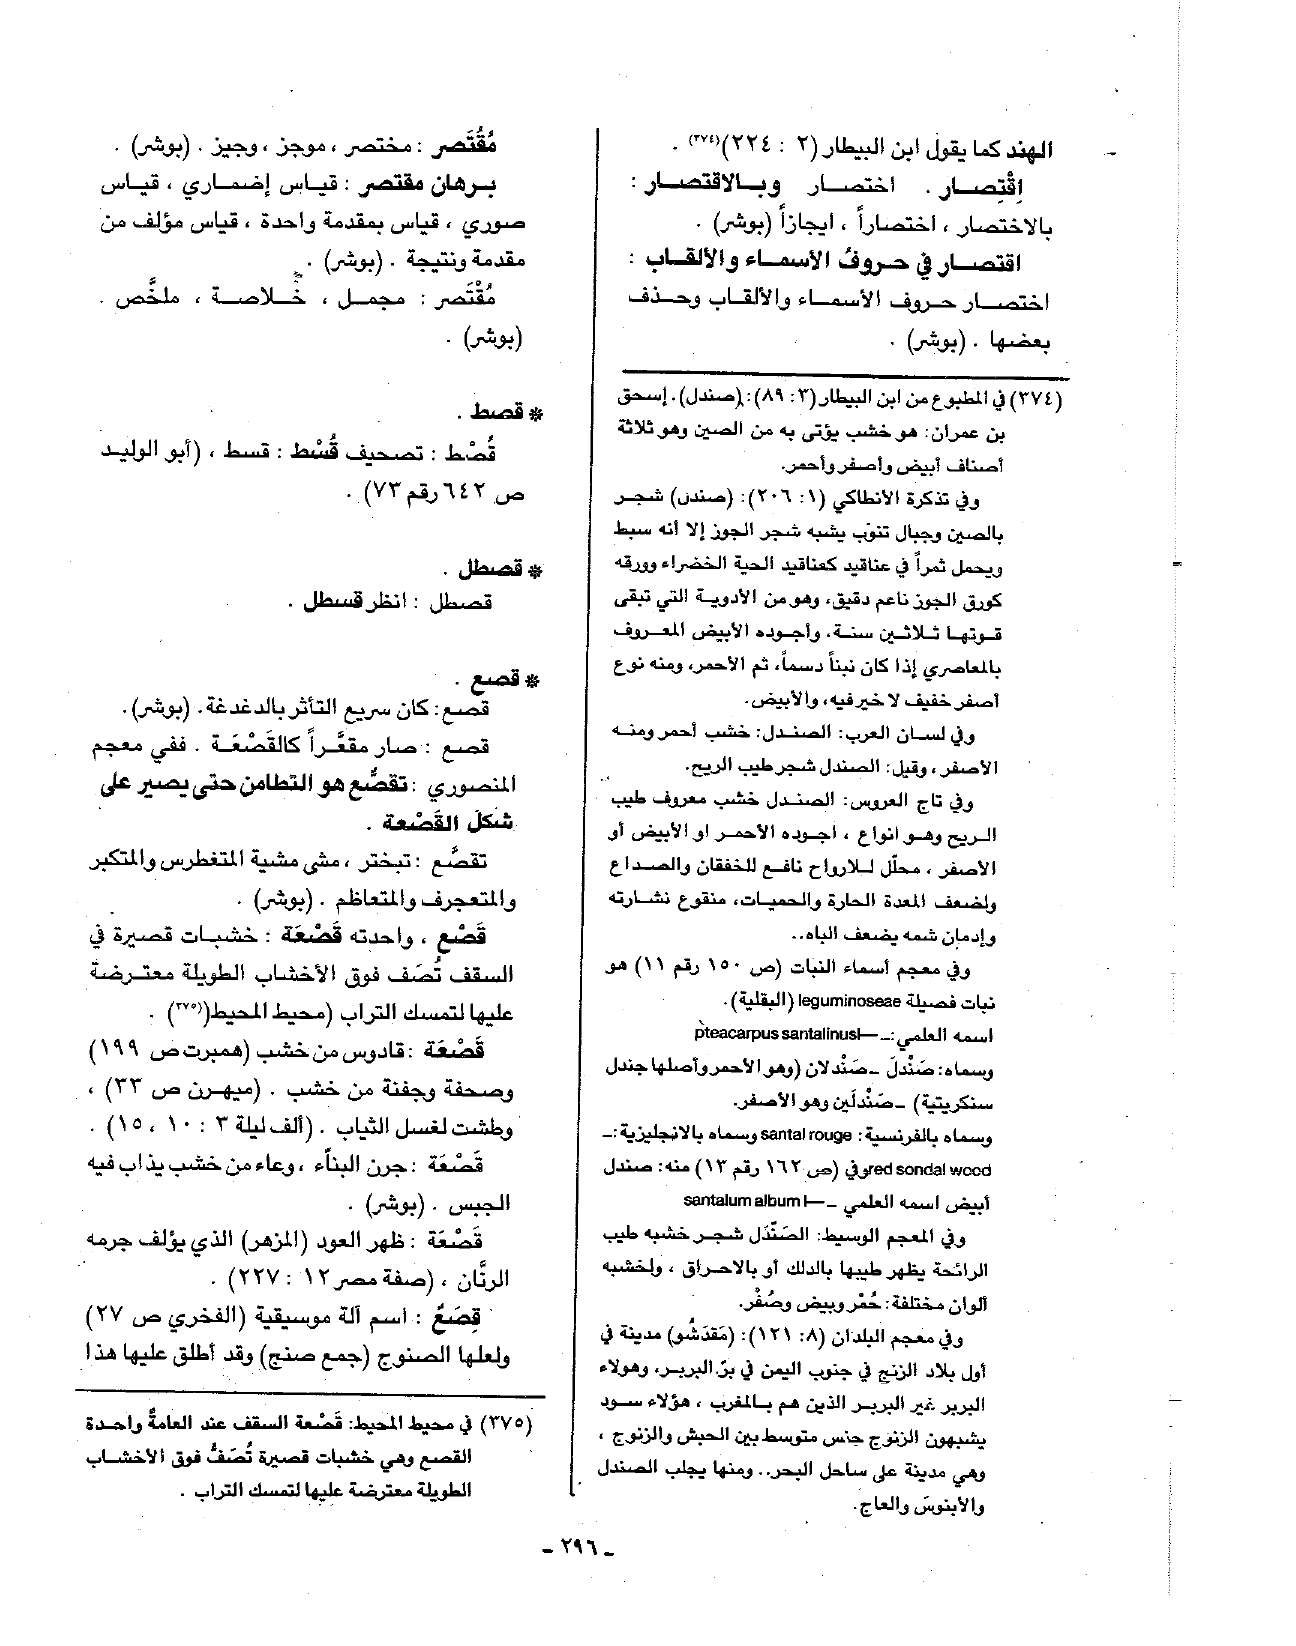 الهند كما يقول ابن البيطار (٢ : ٢٢٤)(٣٧٤) .
اقْتِصار . اختصار وبالاقتصار :
بالاختصار ، اختصاراً ، ايجازاً (بوشر) .
اقتصار في حروف الأسماء والألقاب :
اختصار حروف الأسماء والألقاب وحذف
بعضها . (بوشر) .
(٣٧٤) في المطبوع من ابن البيطار (٣: ٨٩): (صندل). إسحق
بن عمران: هو خشب يؤتى به من الصين وهو ثلاثة
أصناف أبيض وأصفر وأحمر.
وفي تذكرة الانطاكي (١: ٢٠٦): (صندن) شجر
بالصين وجبال تنوب يشبه شجر الجوز إلا أنه سبط
ويحمل ثمراً في عناقيد كعناقيد الحية الخضراء وورقه
كورق الجوز ناعم دقيق، وهو من الأدوية التي تبقى
قوتها ثلاثين سنة، وأجوده الأبيض المعروف
بالمعاصري إذا كان نبتاً دسماً، ثم الاحمر، ومنه نوع
أصفر خفيف لا خير فيه، والأبيض.
وفي لسان العرب: الصندل: خشب أحمر ومنه
الاصفر، وقيل: الصندل شجر طيب الريح.
وفي تاج العروس: الصندل خشب معروف طيب
الريح وهو انواع ، أجوده الاحمر او الأبيض أو
الاصفر ، محلّل للارواح نافع للخفقان والصداع
ولضعف المعدة الحارة والحميات، منقوع نشارته
وإدمان شمه يضعف الباه..
وفي معجم أسماء النبات (ص ١٥٠ رقم ١١) هو
نبات فصيلة leguminoseae (البقلية).
اسمه العلمي:ـ pteacarpus santalinusl—
وسماه: صَنْدلَ ـ صَنْدلان (وهو الاحمر وأصلها جندل
سنكريتية) ـ صَنْدلَين وهو الأصفر.
وسماه بالفرنسية: santal rouge وسماه بالانجليزية:ـ
red sondal wood وفي (ص ١٦٢ رقم ١٣) منه: صندل
أبيض اسمه العلمي ـ santalum album l—
وفي المعجم الوسيط: الصَنْدَل شجر خشبه طيب
الرائحة يظهر طيبها بالدلك أو بالاحراق ، ولخشبه
ألوان مختلفة: حُمْر وبيض وصُفْر.
وفي معجم البلدان (٨: ١٢١): (مَقَدشُو) مدينة في
أول بلاد الزنج في جنوب اليمن في برّ البربر، وهولاء
البربر غير البربر الذين هم بالمغرب ، هؤلاء سود
يشبهون الزنوج جنس متوسط بين الحبش والزنوج ،
وهي مدينة على ساحل البحر.. ومنها يجلب الصندل
والابنوسَ والعاج.
مُقْتَصر : مختصر ، موجز ، وجيز . (بوشر) .
برهان مقتصر : قياس إضماري ، قياس
صوري ، قياس بمقدمة واحدة ، قياس مؤلف من
مقدمة ونتيجة . (بوشر) .
مُقْتَصر : مجمل ، خلاصة ، ملخَّص .
(بوشر) .
* قصط .
قُصْط : تصحيف قُسْط : قسط ، (أبو الوليد
ص ٦٤٢ رقم ٧٣) .
* قصطل .
قصطل : انظر قسطل .
* قصع .
قصع: كان سريع التأثر بالدغدغة. (بوشر).
قصع : صار مقعَّراً كالقَصْعَة . ففي معجم
المنصوري : تقصُّع هو التطامن حتى يصير على
شكل القَصْعة .
تقصَّع : تبختر ، مشى مشية المتغطرس والمتكبر
والمتعجرف والمتعاظم . (بوشر) .
قَصْع ، واحدته قَصْعَة : خشبات قصيرة في
السقف تُصَف فوق الأخشاب الطويلة معترضة
عليها لتمسك التراب (محيط المحيط(٣٧٥) .
قَصْعَة : قادوس من خشب (همبرت ص ١٩٩)
وصحفة وجفنة من خشب . (ميهرن ص ٣٣) ،
وطشت لغسل الثياب . (ألف ليلة ٣ : ١٠ ، ١٥) .
قَصْعَة : جرن البنّاء ، وعاء من خشب يذاب فيه
الجبس . (بوشر) .
قَصْعَة : ظهر العود (المزهر) الذي يؤلف جرمه
الرنَّان ، (صفة مصر ١٢ : ٢٢٧) .
قِصَعٌ : اسم آلة موسيقية (الفخري ص ٢٧)
ولعلها الصنوج (جمع صنج) وقد أطلق عليها هذا
(٣٧٥) في محيط المحيط: قَصْعة السقف عند العامة واحدة
القصع وهي خشبات قصيرة تُصَفُّ فوق الأخشاب
الطويلة معترضة عليها لتمسك التراب .
ـ ٢٩٦ ـ